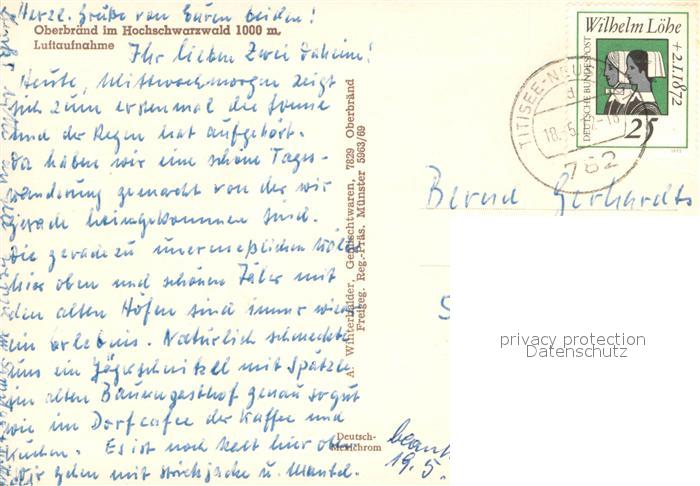 Herzl. Grüße von Euren beiden!
Oberbränd im Hochschwarzwald 1000 m,
Luftaufnahme
Ihr lieben Zwei daheim!
Heute, Mittwochmorgen zeigt
sich zum erstenmal die Sonne
und der Regen hat aufgehört.
Da haben wir eine schöne Tages-
wanderung gemacht von der wir
gerade heimgekommen sind.
Die geradezu unermeßlichen Wälder
hier oben und schönen Täler mit
den alten Höfen sind immer wieder
ein Erlebnis. Natürlich schmeckte
uns ein Jägerschnitzel mit Spätzle
im alten Bauerngasthof genau so gut
wie im Dorfcafee der Kaffee und
Kuchen. Es ist noch kalt hier oben
Wir gehen mit Strickjacke u. Mantel.
A. Winterhalder, Gemischtwaren, 7829 Oberbränd
Freigeg. Reg.-Präs. Münster 5963/69
Deutsch-
Mexichrom
beant
19.5.
Wilhelm Löhe
+2.1.1872
DEUTSCHE BUNDESPOST
25
TITISEE-NEU
18.-5.
-18
782
Bernd Gerhardts
privacy protection
Datenschutz